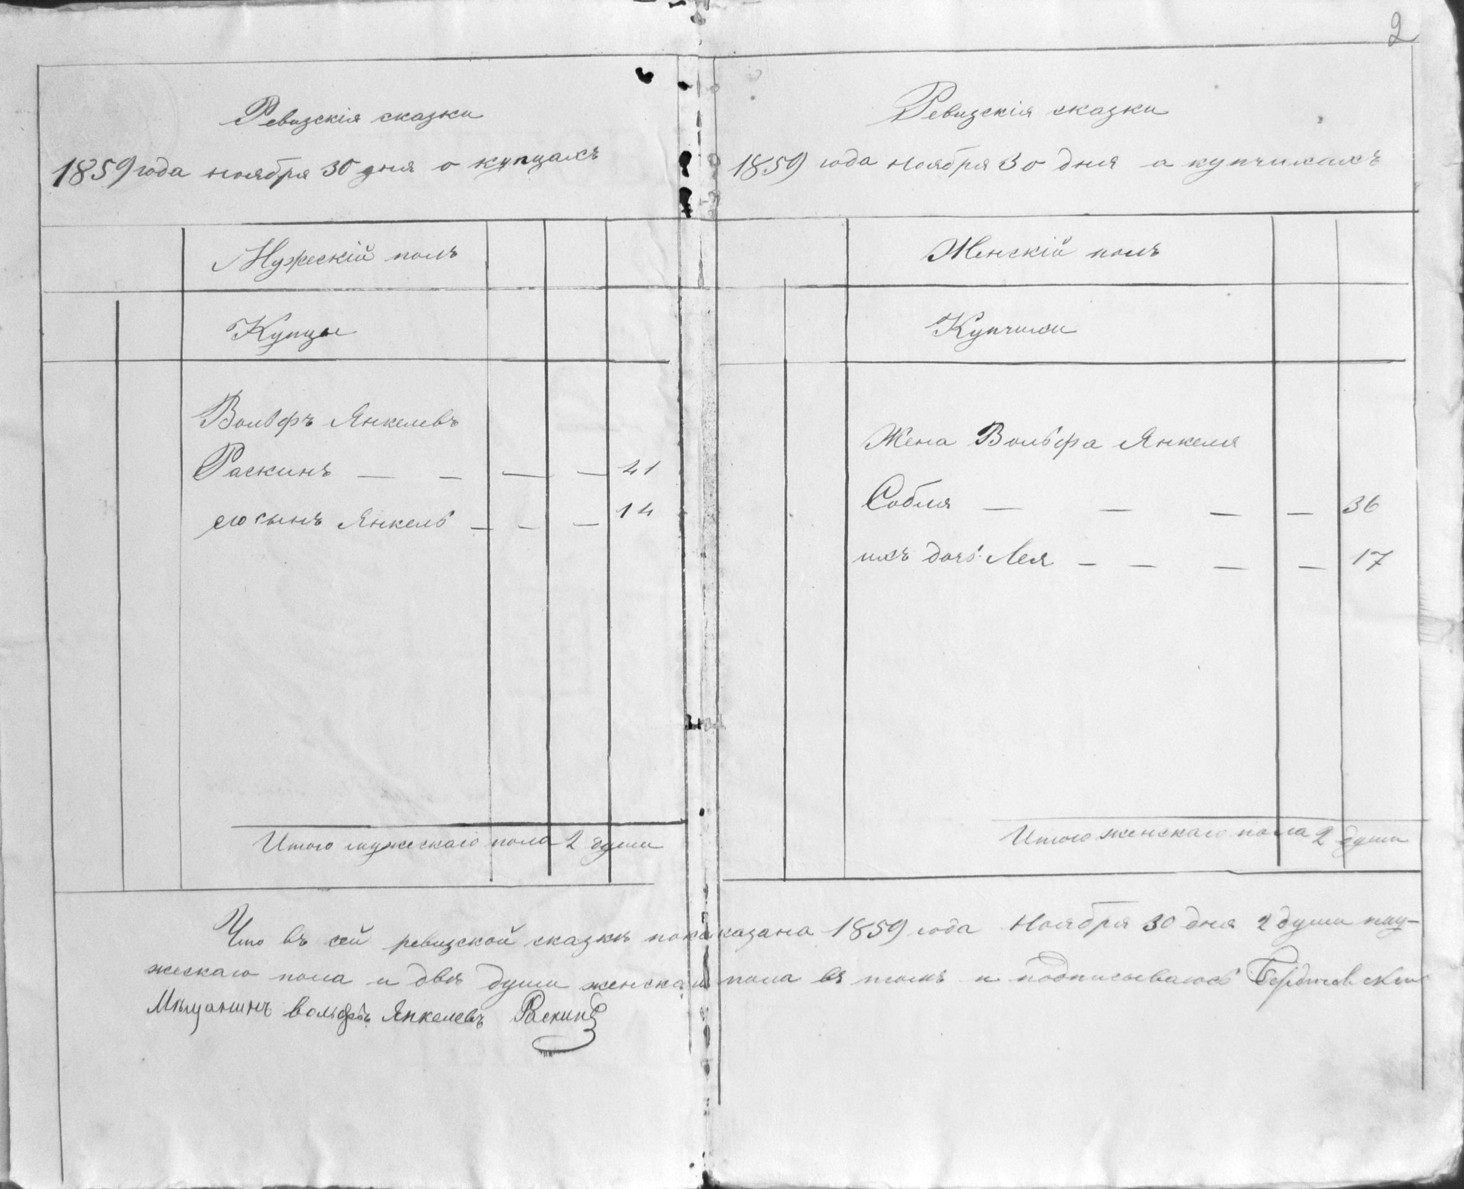 2
Ревизскія сказки
1859 года ноября 30 дня о купцахъ
Мужескій полъ
Купцы
Вольфъ Янкелевъ
Раскинъ — — — — 41
его сынъ Янкель — — — 14
Итого мужескаго пола 2 души
Ревизскія сказки
1859 года ноября 30 дня о купчихахъ
Женскій полъ
Купчихи
Жена Вольфа Янкеля
Собля — — — — 36
ихъ дочь Лея — — — — 17
Итого женскаго пола 2 души
Что въ сей ревизской сказкѣ показана 1859 года Ноября 30 дня 2 души му-
жескаго пола и двѣ души женскаго пола въ томъ и подписываюсь Бердичевский
Мѣщанинъ Вольфъ Янкелевъ Раскинъ